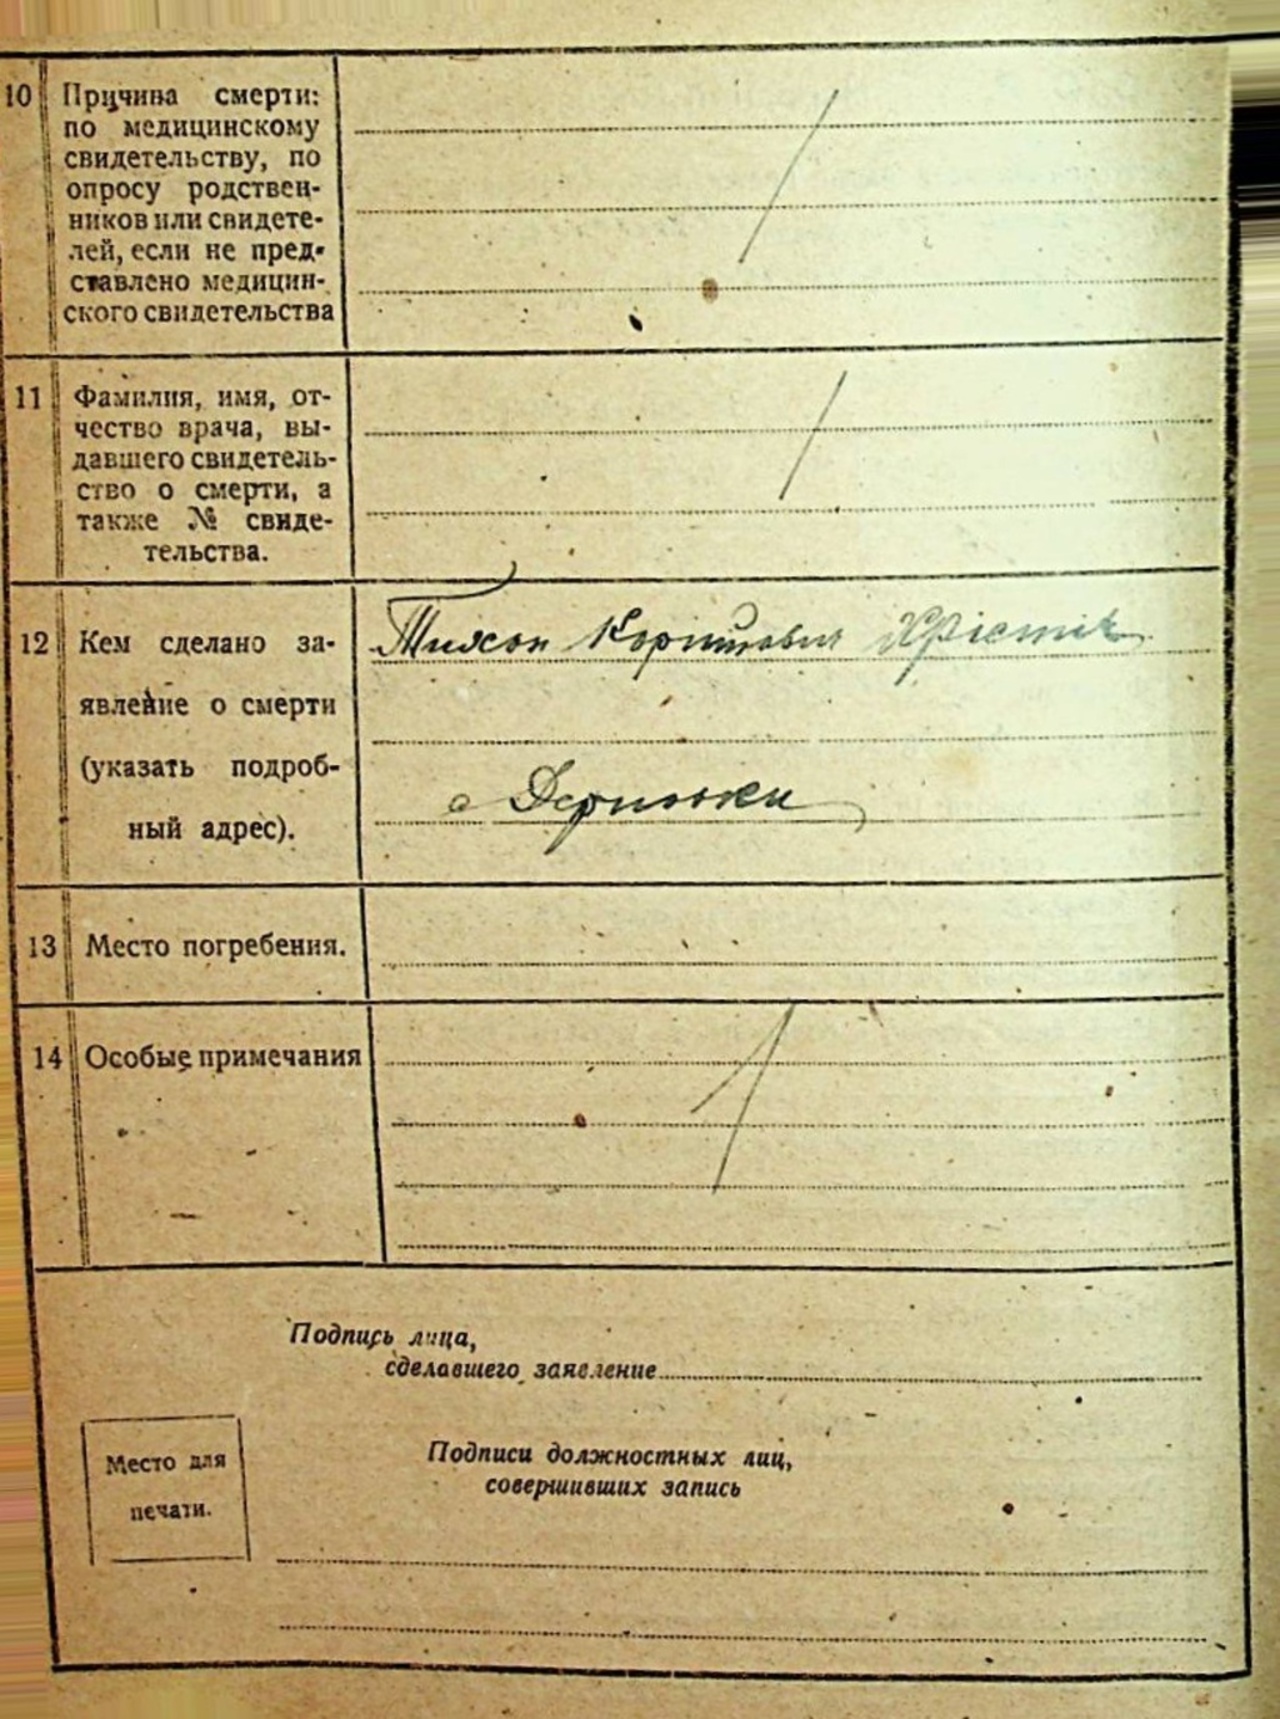 10 Причина смерти:
по медицинскому
свидетельству, по
опросу родствен-
ников или свидете-
лей, если не пред-
ставлено медицин-
ского свидетельства
11 Фамилия, имя, от-
чество врача, вы-
давшего свидетель-
ство о смерти, а
также № свиде-
тельства.
12 Кем сделано за-
явление о смерти
(указать подроб-
ный адрес).
Тихон
с
13 Место погребения.
14 Особые примечания
Подпись лица,
сделавшего заявление
Место для
печати.
Подписи должностных лиц,
совершивших запись